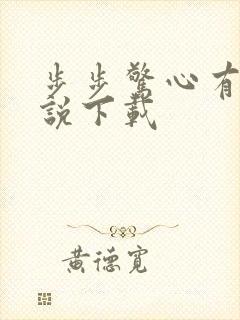 步步驚心有
說下載
黃德寬